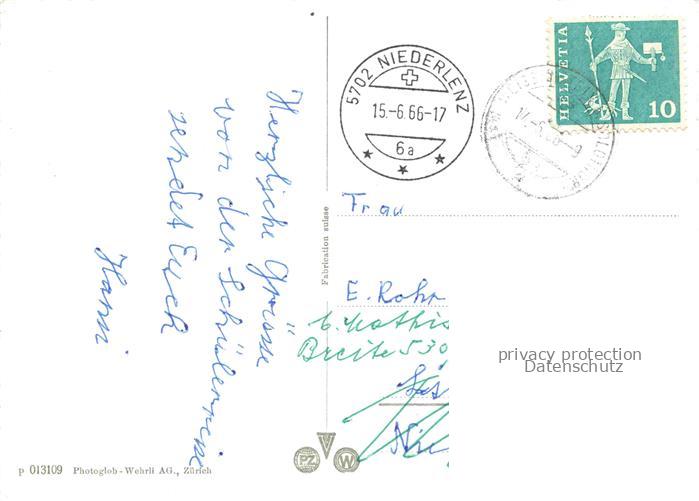 Herzliche Grüsse
von der Schülerreise
sendet Euch
Hanni
p 013109 Photoglob-Wehrli AG., Zürich
Fabrication suisse
PZ W
5702 NIEDERLENZ
15.-6.66-17
6a
HELVETIA
10
Frau
E. Rohr
b. Mathis
Breite 530
Nie
privacy protection
Datenschutz